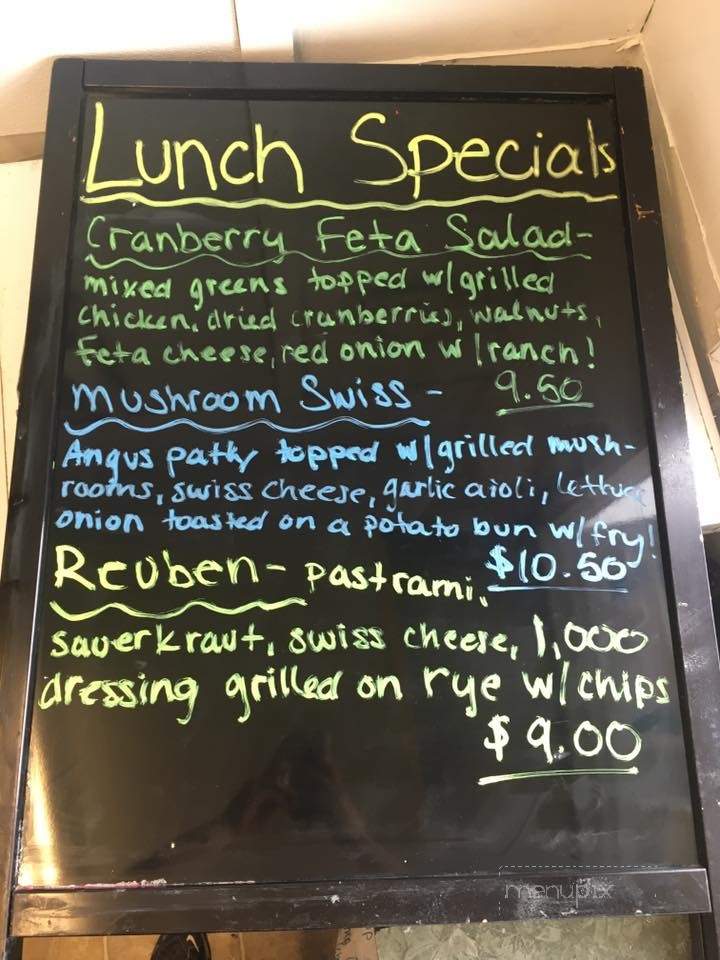 Lunch Specials
Cranberry Feta Salad-
mixed greens topped w/grilled
chicken, dried cranberries, walnuts,
feta cheese, red onion w/ranch!
9.50
Mushroom Swiss -
Angus patty topped w/grilled mush-
rooms, swiss cheese, garlic aioli, lettuce
onion toasted on a potato bun w/fry!
$10.50
Reuben- pastrami,
sauerkraut, swiss cheese, 1,000
dressing grilled on rye w/chips
$9.00
menupix